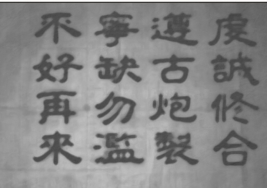 虔誠修合
遵古炮製
寧缺勿濫
不好再來